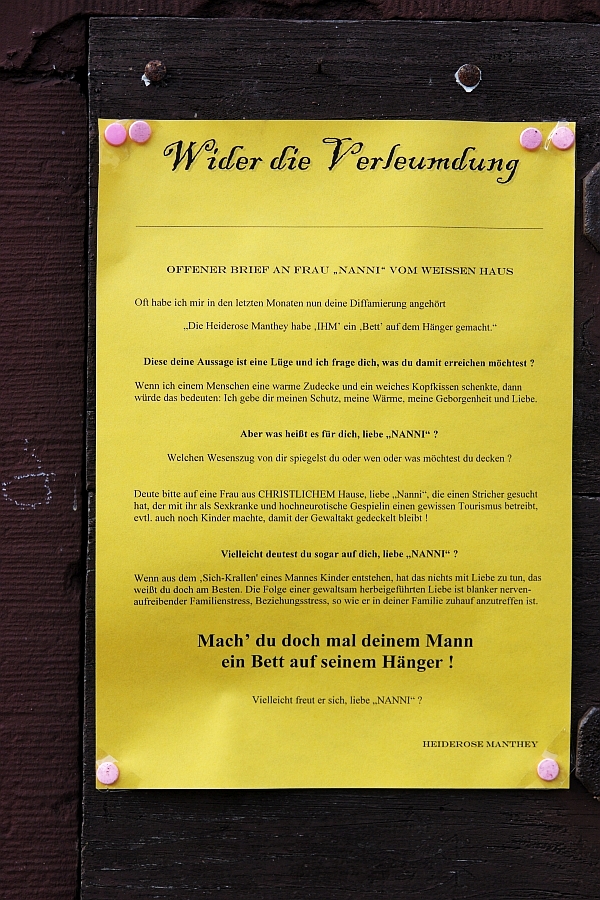 Wider die Verleumdung
OFFENER BRIEF AN FRAU „NANNI“ VOM WEISSEN HAUS
Oft habe ich mir in den letzten Monaten nun deine Diffamierung angehört
„Die Heiderose Manthey habe ‚IHM’ ein ‚Bett’ auf dem Hänger gemacht.“
Diese deine Aussage ist eine Lüge und ich frage dich, was du damit erreichen möchtest ?
Wenn ich einem Menschen eine warme Zudecke und ein weiches Kopfkissen schenkte, dann
würde das bedeuten: Ich gebe dir meinen Schutz, meine Wärme, meine Geborgenheit und Liebe.
Aber was heißt es für dich, liebe „NANNI“ ?
Welchen Wesenszug von dir spiegelst du oder wen oder was möchtest du decken ?
Deute bitte auf eine Frau aus CHRISTLICHEM Hause, liebe „Nanni“, die einen Stricher gesucht
hat, der mit ihr als Sexkranke und hochneurotische Gespielin einen gewissen Tourismus betreibt,
evtl. auch noch Kinder machte, damit der Gewaltakt gedeckelt bleibt !
Vielleicht deutest du sogar auf dich, liebe „NANNI“ ?
Wenn aus dem ‚Sich-Krallen’ eines Mannes Kinder entstehen, hat das nichts mit Liebe zu tun, das
weißt du doch am Besten. Die Folge einer gewaltsam herbeigeführten Liebe ist blanker nerven-
aufreibender Familienstress, Beziehungsstress, so wie er in deiner Familie zuhauf anzutreffen ist.
Mach’ du doch mal deinem Mann
ein Bett auf seinem Hänger !
Vielleicht freut er sich, liebe „NANNI“ ?
HEIDEROSE MANTHEY